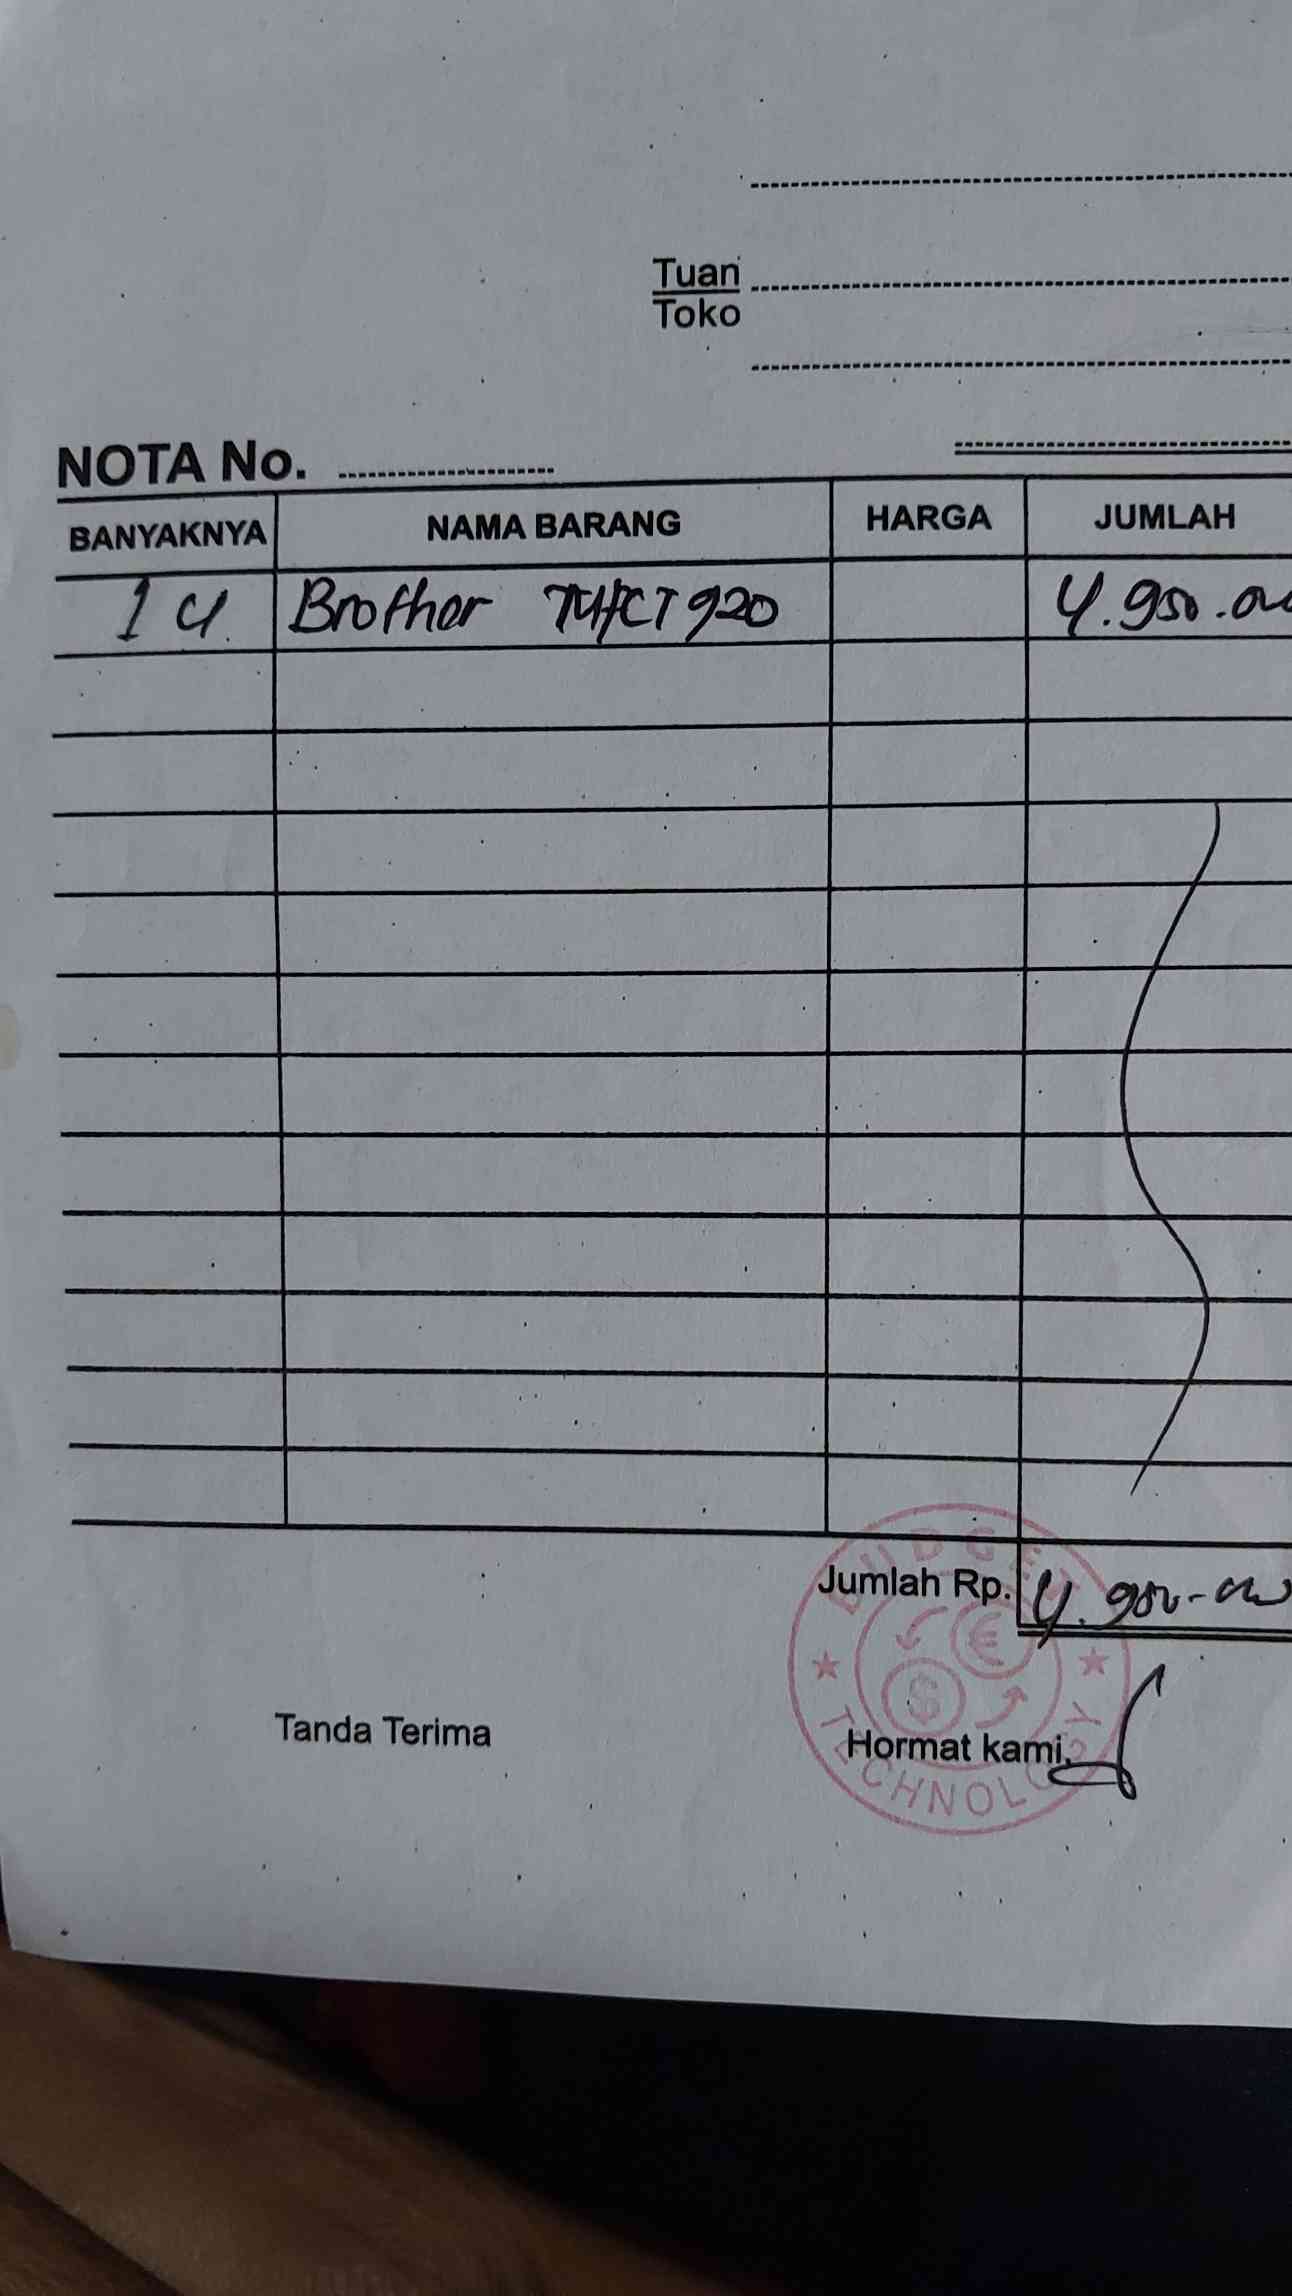 Tuan
Toko
NOTA No.
BANYAKNYA NAMA BARANG HARGA JUMLAH
1 u. Brother 920 4.950.
Jumlah Rp. 4.
BUDGET
TECHNOLOGY
Tanda Terima Hormat kami,